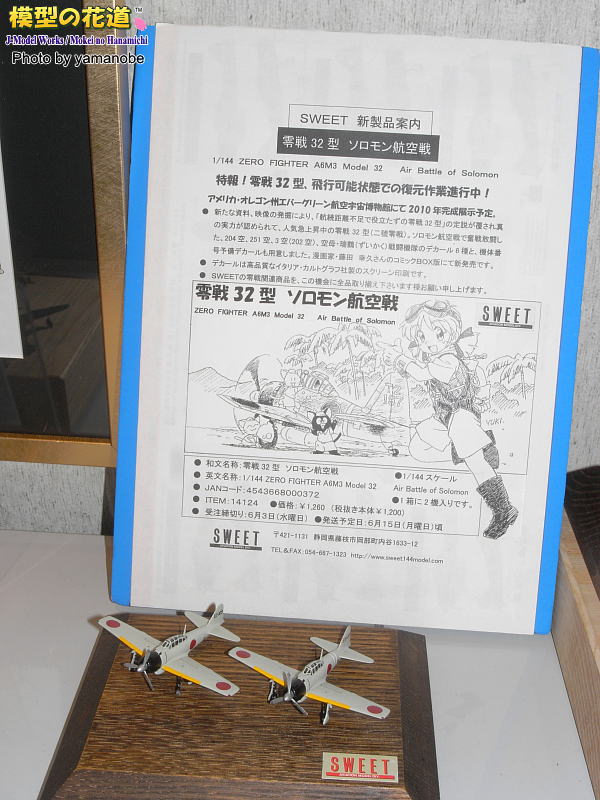 模型の花道™
J-Model Works / Mokei no Hanamichi
Photo by yamanobe
SWEET 新製品案内
零戦 32 型 ソロモン航空戦
1/144 ZERO FIGHTER A6M3 Model 32 Air Battle of Solomon
特報!零戦 32 型、飛行可能状態での復元作業進行中!
アメリカ・オレゴン州エバーグリーン航空宇宙博物館にて 2010 年完成展示予定。
● 新たな資料、映像の発掘により、「航続距離不足で役立たずの零戦 32 型」の定説が覆され真
の実力が認められて、人気急上昇中の零戦 32 型(二號零戦)。ソロモン航空戦で奮戦敢闘し
た、204 空、251 空、3 空(202 空)、空母・瑞鶴(ずいかく)戦闘機隊のデカール 6 種と、機体番
号予備デカールも用意しました。漫画家・藤田 幸久さんのコミックBOX版にて新発売です。
● デカールは高品質なイタリア・カルトグラフ社製のスクリーン印刷です。
● SWEETの零戦関連商品を、この機会に全品取り揃え下さいます様お願い申し上げます。
零戦 32 型 ソロモン航空戦
ZERO FIGHTER A6M3 Model 32 Air Battle of Solomon
SWEET
YUKI.
● 和文名称:零戦 32 型 ソロモン航空戦 ●1/144 スケール
● 英文名称:1/144 ZERO FIGHTER A6M3 Model 32 Air Battle of Solomon
● JANコード:4543668000372 ● 1 箱に 2 機入りです。
● ITEM:14124 ●価格:¥1,260 (税抜き本体¥1,200)
● 受注締切り:6月3日(水曜日) ●発送予定日:6月15日(月曜日)頃
SWEET
〒421-1131 静岡県藤枝市岡部町内谷1633-12
TEL&FAX:054-667-1323 http://www.sweet144model.com
SWEET